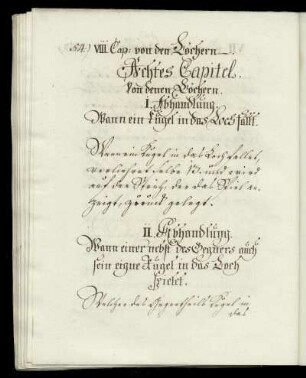 54.) VIII. Cap: von den Löchern
Achtes Capitel.
Von denen Löchern.
I. Abhandlung
Wann ein Kugel in das Loch fallt.
Wann ein Kugel in das Loch fallet,
verliehret selbe und wird
auf der Streich, der das Spiel an-
zeigt, gelegt.
II. Abhandlung
Wann einer nebst des Gegners auch
sein eigne Kugel in das Loch
spielet.
Welcher des Gegentheils Kugel in
das